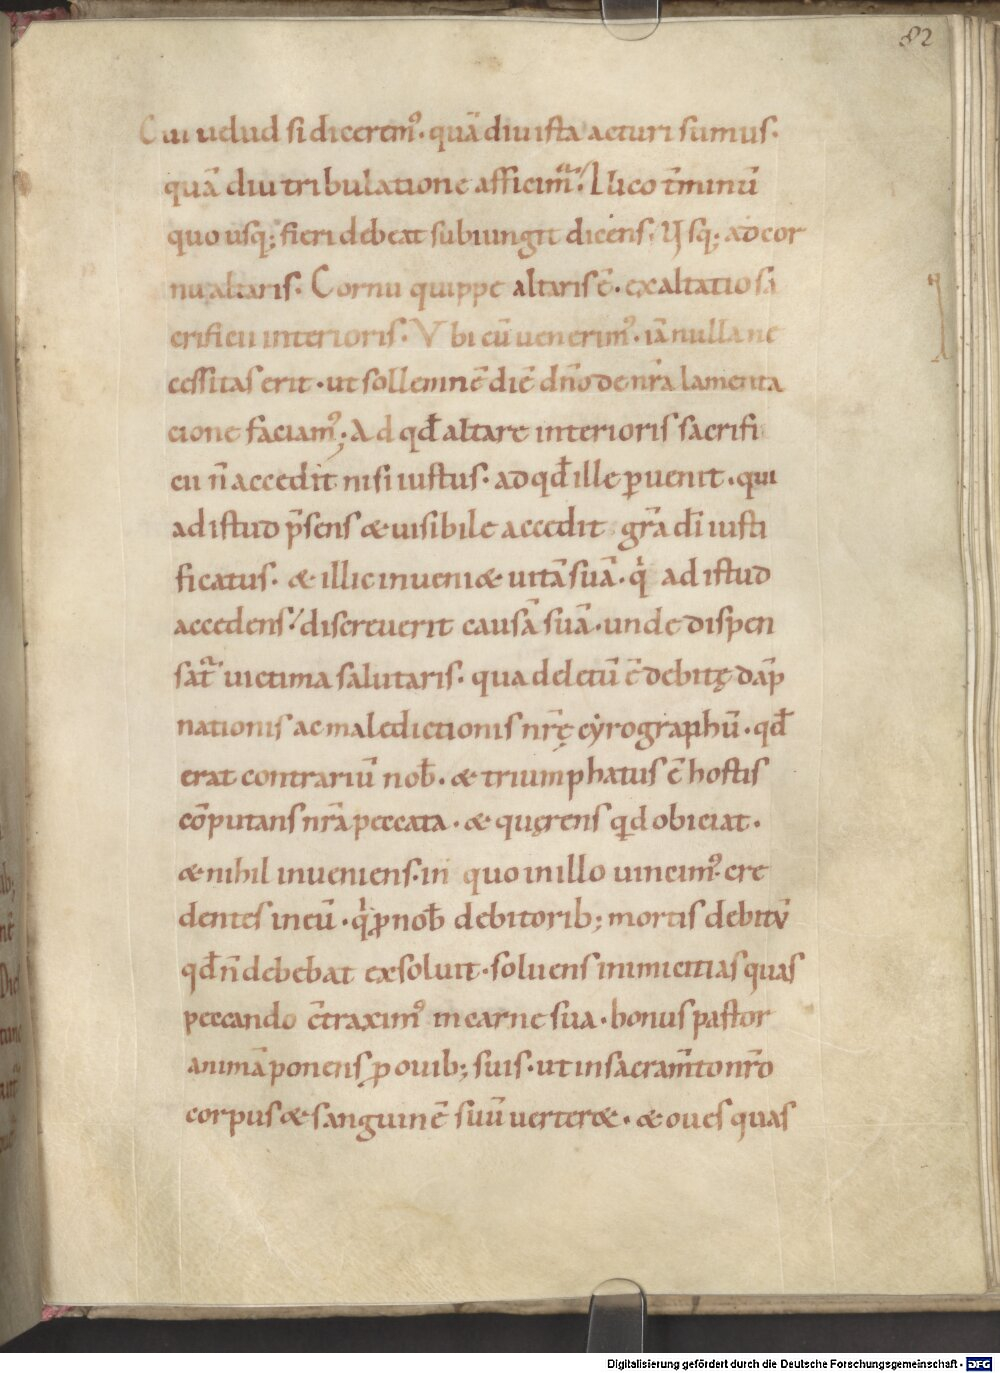 82
Cui uelud si dicerem᾽· quā diu ista acturi sumus·
quā diu tribulatione afficim̄ᷓ· Ilico t̄minū
quo usq; fieri debeat subiungit dicens· Usq; ad cor
nu altaris· Cornu quippe altaris ē· exaltatio sa
crificii interioris· Vbi cū uenerim᾽· iā nulla ne
cessitas erit· ut sollemnē diē dn̄o de nr̄a lamenta
cione faciam᾽; Ad qđ altare interioris sacrifi
cii n̄ accedit nisi iustus· ad qđ ille ꝑuenit· qui
ad istud p̄sens & uisibile accedit gr̄a dī iusti
ficatus· & illic inueni& uitā suā· qͥ ad istud
accedens· discreuerit causā suā· unde dispen
satᷓ uictima salutaris· qua deletū ē debitę dāp
nationis ac maledictionis nr̄ę cẏrographū· qđ
erat contrariū nob̄· & triumphatus ē hostis
cōputans nr̄a peccata· & quęrens qͥd obiciat·
& nihil inueniens· in quo in illo uincim᾽· cre
dentes in eū· qͥ ꝓ nob̄ debitorib; mortis debitū
qđ n̄ debebat exsoluit· soluens inimicitias quas
peccando c̄traxim᾽ in carne sua· bonus pastor
animā ponens ꝓ ouib; suis· ut in sacram̄to nr̄o
corpus & sanguinē suū uerter&· & oues quas
Digitalisierung gefördert durch die Deutsche Forschungsgemeinschaft - DFG